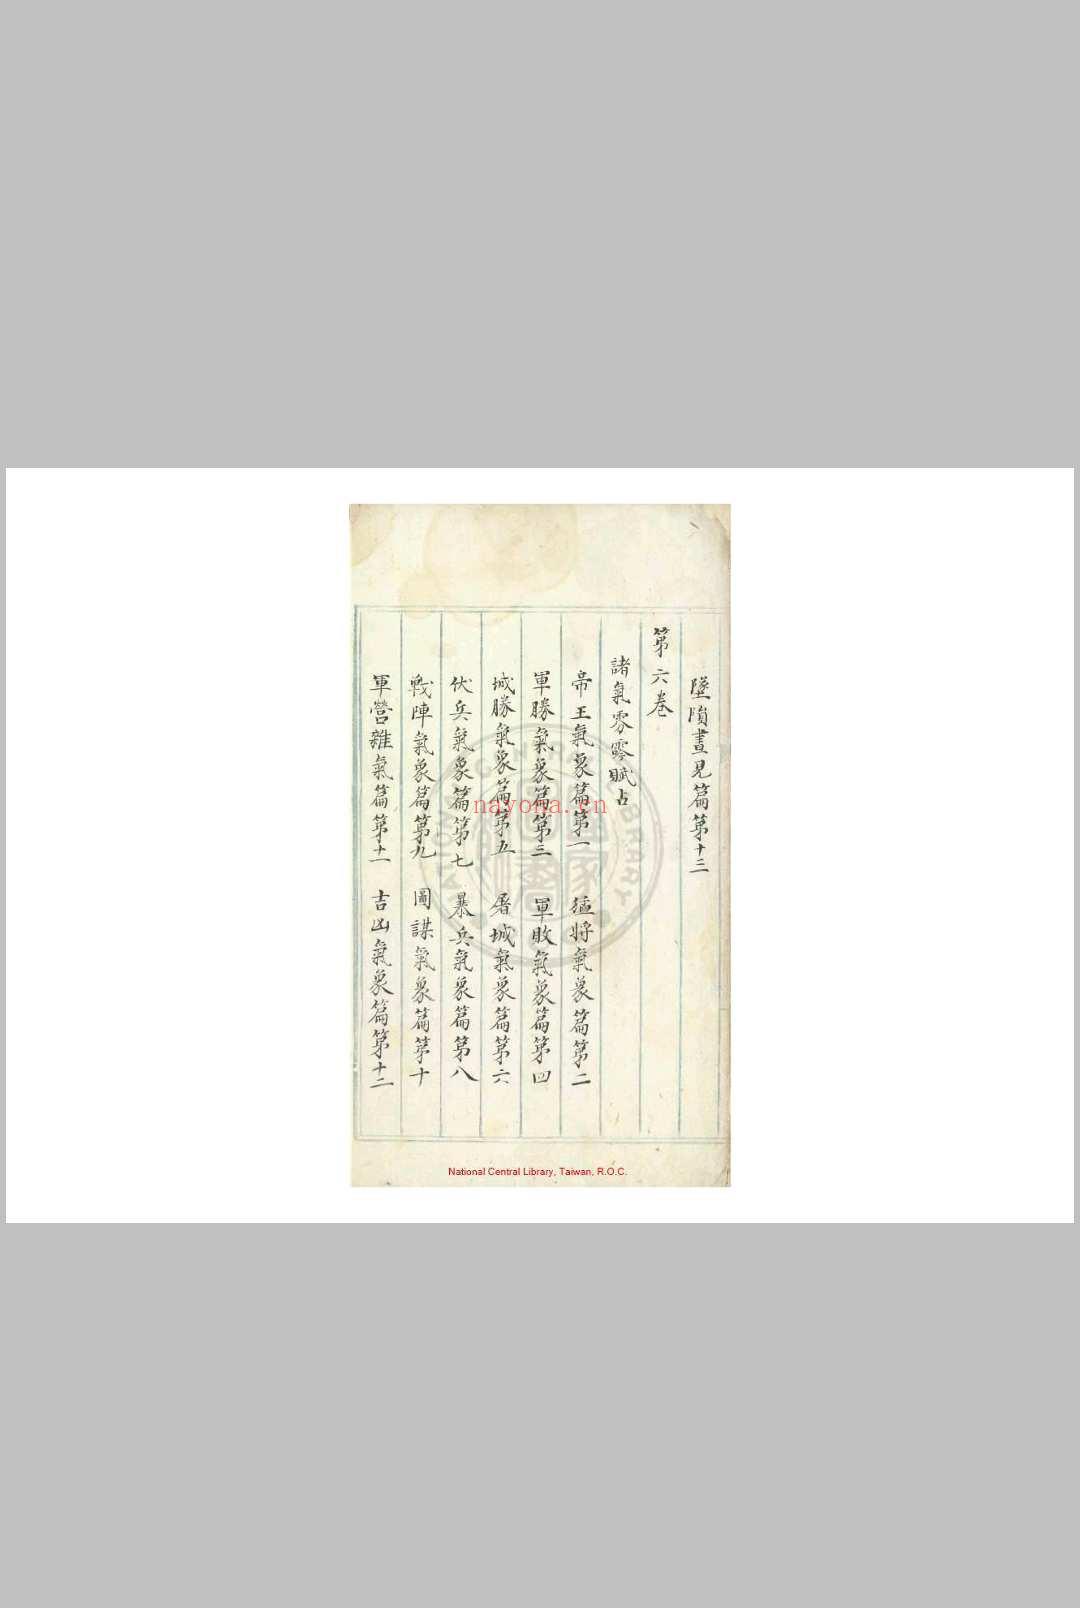 墜隕晝見篇第十三
第六卷
諸氣雰雺賦占
帝王氣象篇第一 猛將氣象篇第二
軍勝氣象篇第三 軍敗氣象篇第四
城勝氣象篇第五 屠城氣象篇第六
伏兵氣象篇第七 暴兵氣象篇第八
戰陣氣象篇第九 圖謀氣象篇第十
軍營雜氣篇第十一 吉凶氣象篇第十二
nayona.cn
National Central Library, Taiwan, R.O.C.